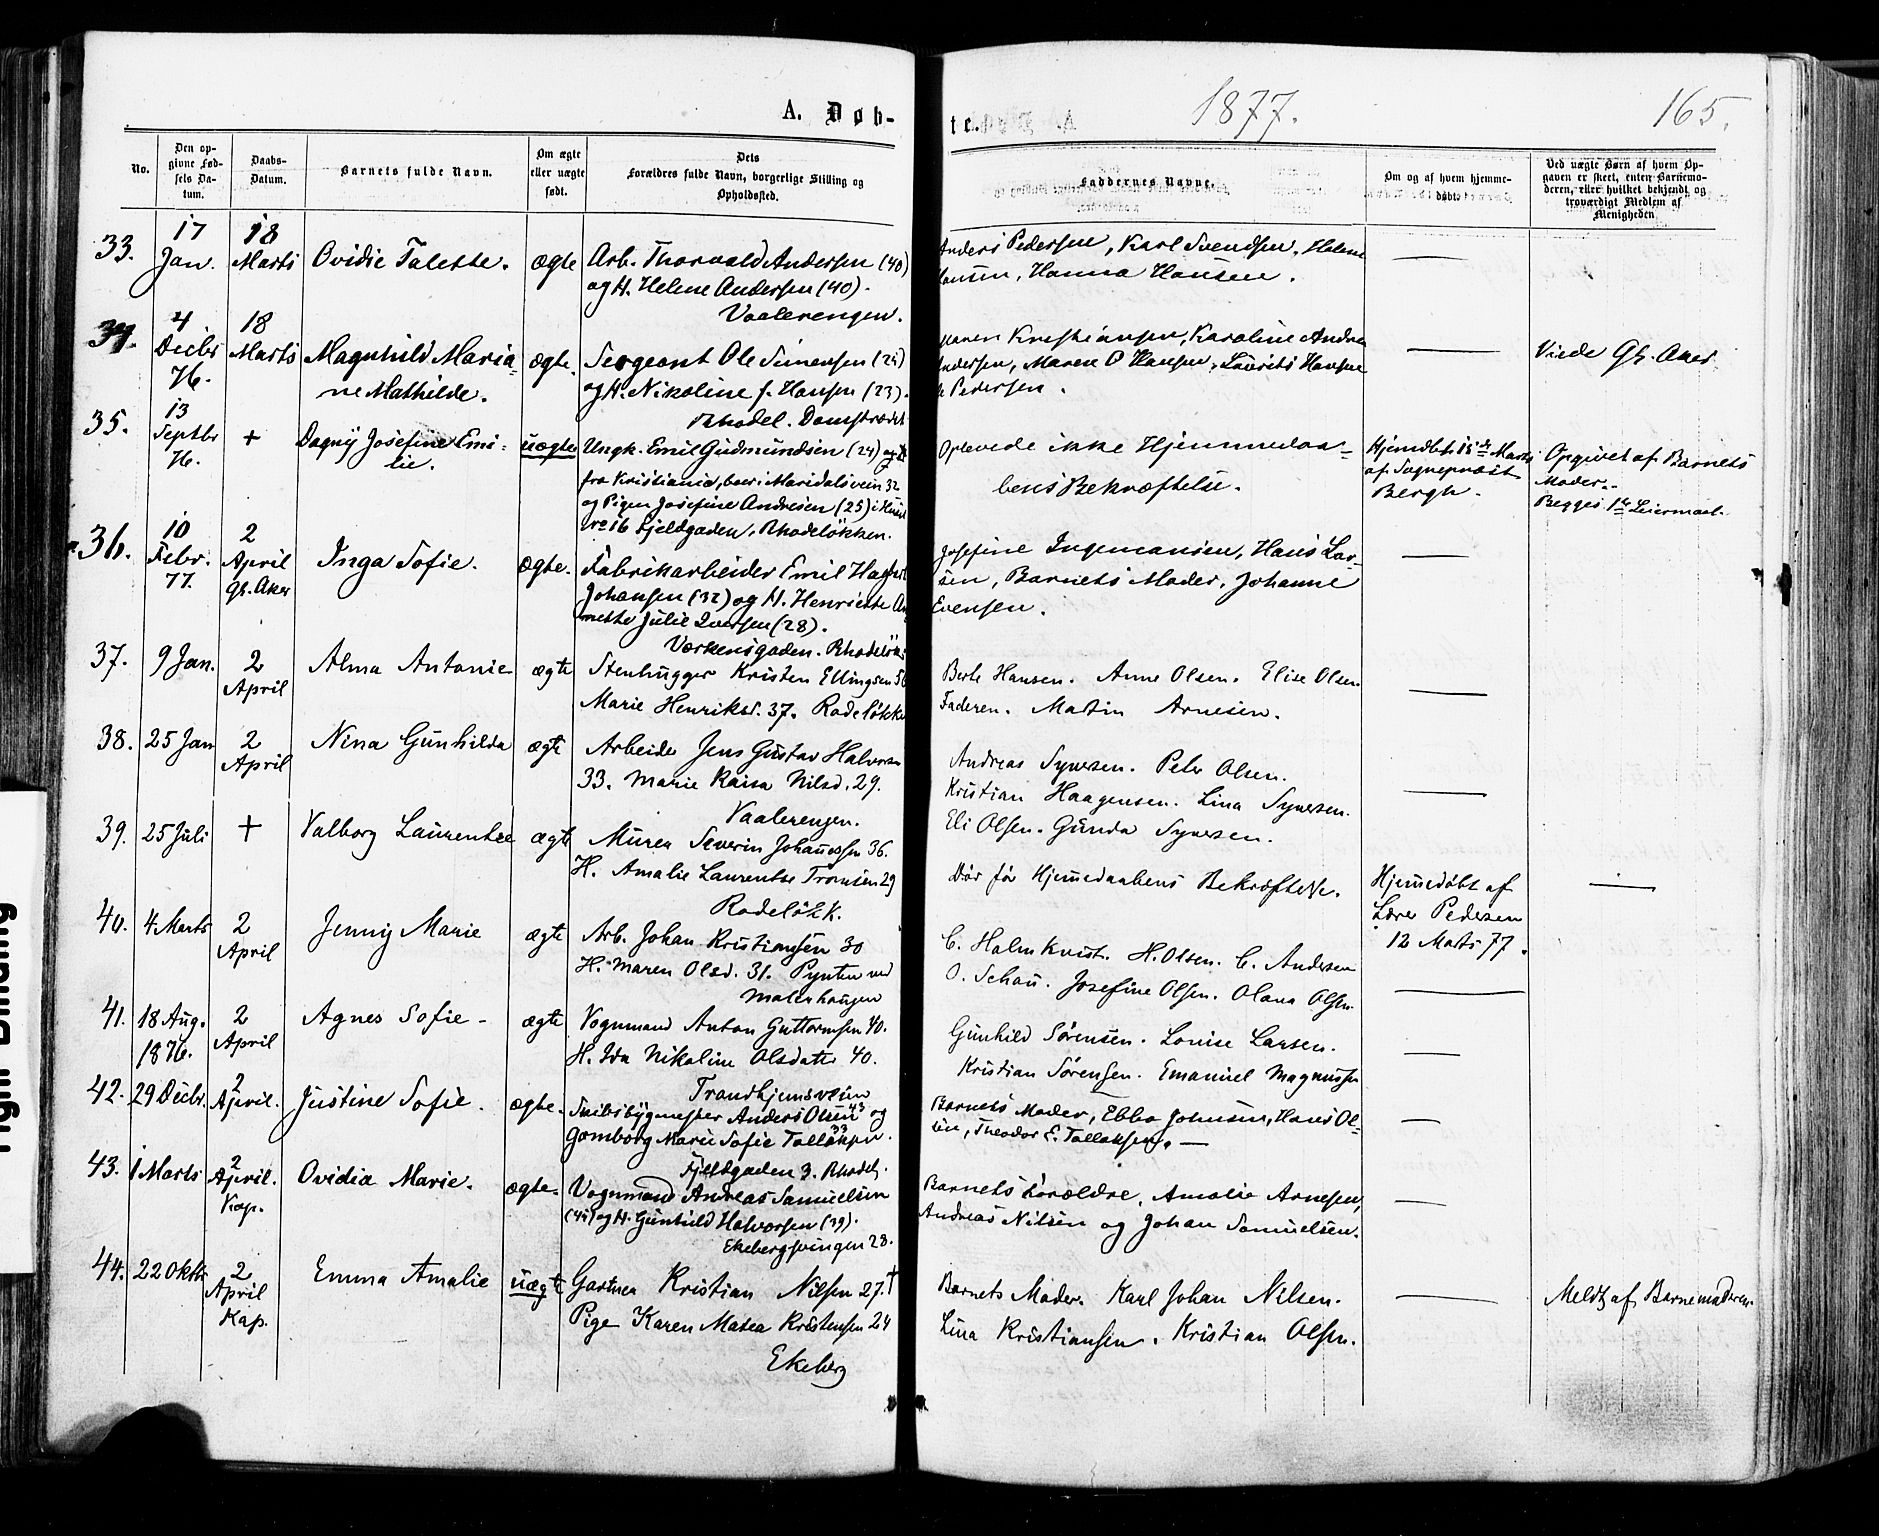 A. Døb-
te.
1877.
165.
No.
Den op-
givne Fød-
sels Da-
tum.
Daabs-
Datum.
Barnets fulde Navn.
Om ægte
eller uægte
født.
Dets
Forældres fulde Navn, borgerlige Stilling og
Opholdssted.
Faddernes Navne.
Om og af hvem hjemme-
døbt.
Ved uægte Børn af hvem Op-
gaven er skeet, enten Barnemo-
deren, eller hvilket bekjendt og
troværdigt Medlem af
Menigheden
33.
17
Jan.
18
Marts
Ovidie Talette.
ægte
Arb. Thorvald Andersen (40)
og H. Helene Andersen (40).
Vaalerengen.
Anders Pedersen, Karl Svendsen, Helene
Hansen, Hanna Hansen.
34.
4
Decbr
76.
18
Marts
Magnhild Maria-
ne Mathilde.
ægte.
Sergeant Ole Simensen (25)
og H. Nikoline f. Hansen (23).
Rhodel. Damstrædet
Kristiansen, Karoline Andrea
Andersen, Maren O Hansen, Laurits Hansen
Pedersen.
Viede Gl. Aker.
35.
13
Septbr
76.
+
Dagny Josefine Emi-
lie.
uægte
Ungk. Emil Gudmundsen (24)
fra Kristiania, boer i Maridalsvein 32
og Pigen Josefine Andresen (25) i Huset
no 16 Fjeldgaden, Rhodeløkken.
Oplevede ikke Hjemmedaa-
bens Bekræftelse.
Hjemdbt 15de Marts
af Sognepræst
Bergh.
Opgivet af Barnets
Moder.
Begges 1ste Leiermaal.
36.
10
Febr.
77.
2
April
Gl. Aker
Inga Sofie.
ægte.
Fabrikarbeider Emil
Johansen (32) og H. Henriette An-
nette Julie Iversen (28).
Værkensgaden. Rhodeløk.
Josefine Ingemansen, Hans Lar-
sen, Barnets Moder, Johanne
Evensen.
37.
9 Jan.
2
April
Alma Antonie
ægte
Stenhugger Kristen Ellingsen 50
Marie Henriksd. 37. Rodeløkke
Berte Hansen. Anne Olsen. Elise Olsen
Faderen. Martin Arnesen.
38.
25 Jan
2
April
Nina Gunhilda
ægte
Arbeider Jens Gustav Halvorsen
33. Marie Kaisa Nilsd. 29.
Vaalerengen.
Andreas Syversen. Peter Olsen.
Kristian Haagensen. Lina Syversen.
Eli Olsen. Gunda Syversen.
39.
25 Juli
+
Valborg Laurentse
ægte
Murer Severin Johannessen 36.
H. Amalie Laurentse Tronsen 29
Rodeløkk.
Dør før Hjemmedaabens Bekræftelse.
Hjemmedøbt af
Lærer Pedersen
12 Marts 77.
40.
4 Marts
2
April
Jenny Marie
ægte
Arb. Johan Kristiansen 30
H. Maren Olsd. 31. Pynten ved
Malerhaugen
C. Halmkvist. H. Olsen. C. Andersen
O. Schau. Josefine Olsen. Olava Olsen.
41.
18 Aug.
1876.
2
April
Agnes Sofie
ægte
Vognmand Anton Guttormsen 40.
H. Ida Nikoline Olsdatter 40.
Trondhjemsveien
Gunhild Sørensen. Lovise Larsen.
Kristian Sørensen. Emanuel Magnussen
42.
29 Decbr.
2
April.
Justine Sofie.
ægte.
Skibsbygmester Anders Olsen 43 og
Gomborg Marie Sofie Tollaksen 33.
Fjeldgaden 3. Rhodel.
Barnets Moder, Ebba Johnsen, Hans Ol-
sen, Theodor E. Tollaksen.
43.
1 Marts
2
April.
Kap.
Ovidia Marie.
ægte.
Vognmand Andreas Samuelsen
(45) og H. Gunhild Halvorsen (39).
Ekebergsvingen 28.
Barnets Forældre, Amalie Arnesen,
Andreas Nilsen og Johan Samuelsen.
44.
22 Oktbr
2
April
Kap.
Emma Amalie
uægte
Gartner Kristian Nilsen 27. †
Pige Karen Matea Kristensen 24
Ekeberg
Barnets Moder. Karl Johan Nilsen.
Lina Kristiansen. Kristian Olsen.
Meldt af Barnemoderen.